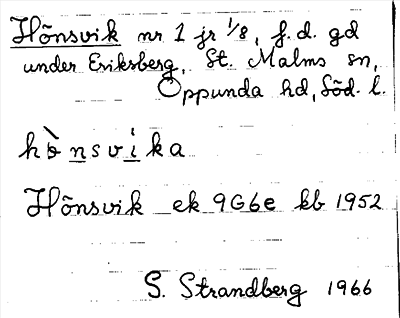 Hönsvik nr 1 jr 1/8, f.d. gd
under Eriksberg, St. Malms sn,
Oppunda hd, Söd. l.
hò̱nsvi̱ka
Hönsvik ek 9G6e kb 1952
S. Strandberg 1966